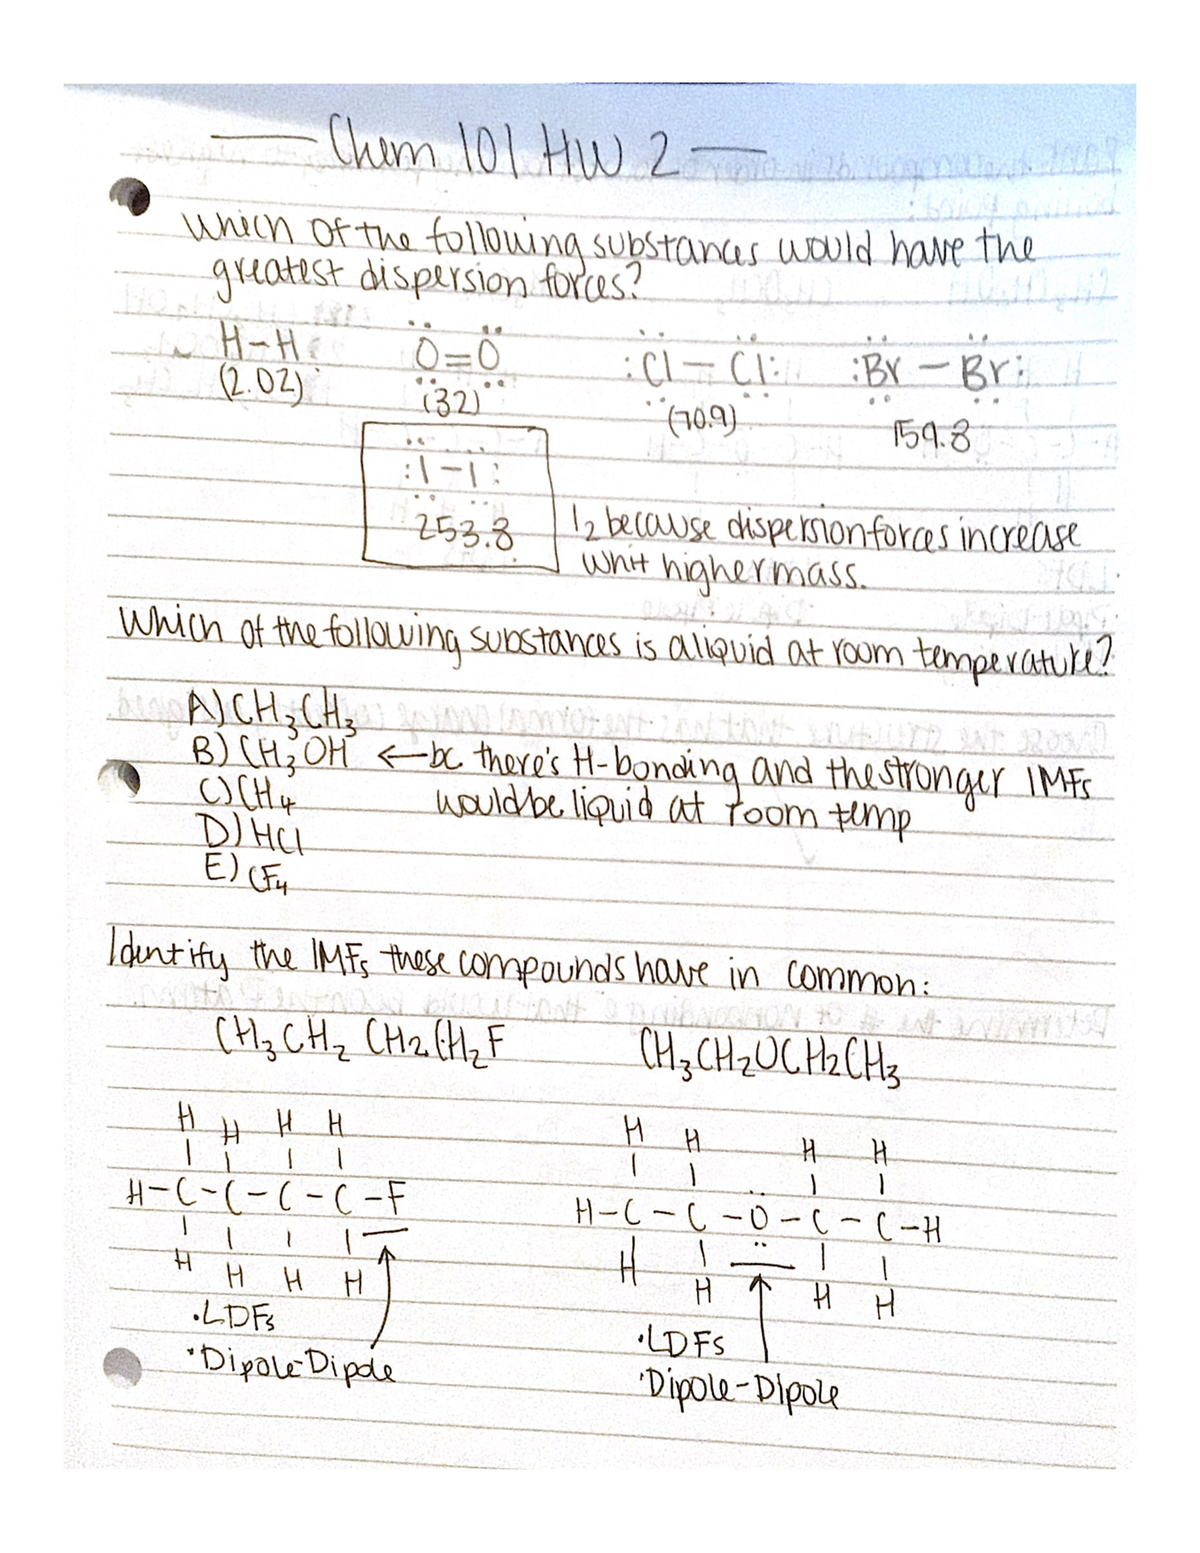 Chem 101 HW 2
Which of the following substances would have the
greatest dispersion forces?
H-H Ö=Ö :Cl-Cl: :Br-Br:
(2.02) (32) (70.9) 159.8
:I-I:
253.8 I₂ because dispersion forces increase
whit higher mass.
Which of the following substances is a liquid at room temperature?
A) CH₃CH₃
B) CH₃OH ← bc there's H-bonding and the stronger IMFs
C) CH₄ would be liquid at room temp
D) HCl
E) CF₄
Identify the IMFs these compounds have in common:
CH₃CH₂CH₂CH₂F CH₃CH₂OCH₂CH₃
H H H H H H H H
H-C-C-C-C-F H-C-C-Ö-C-C-H
H H H H H H H H
•LDFs •LDFs
•Dipole-Dipole •Dipole-Dipole